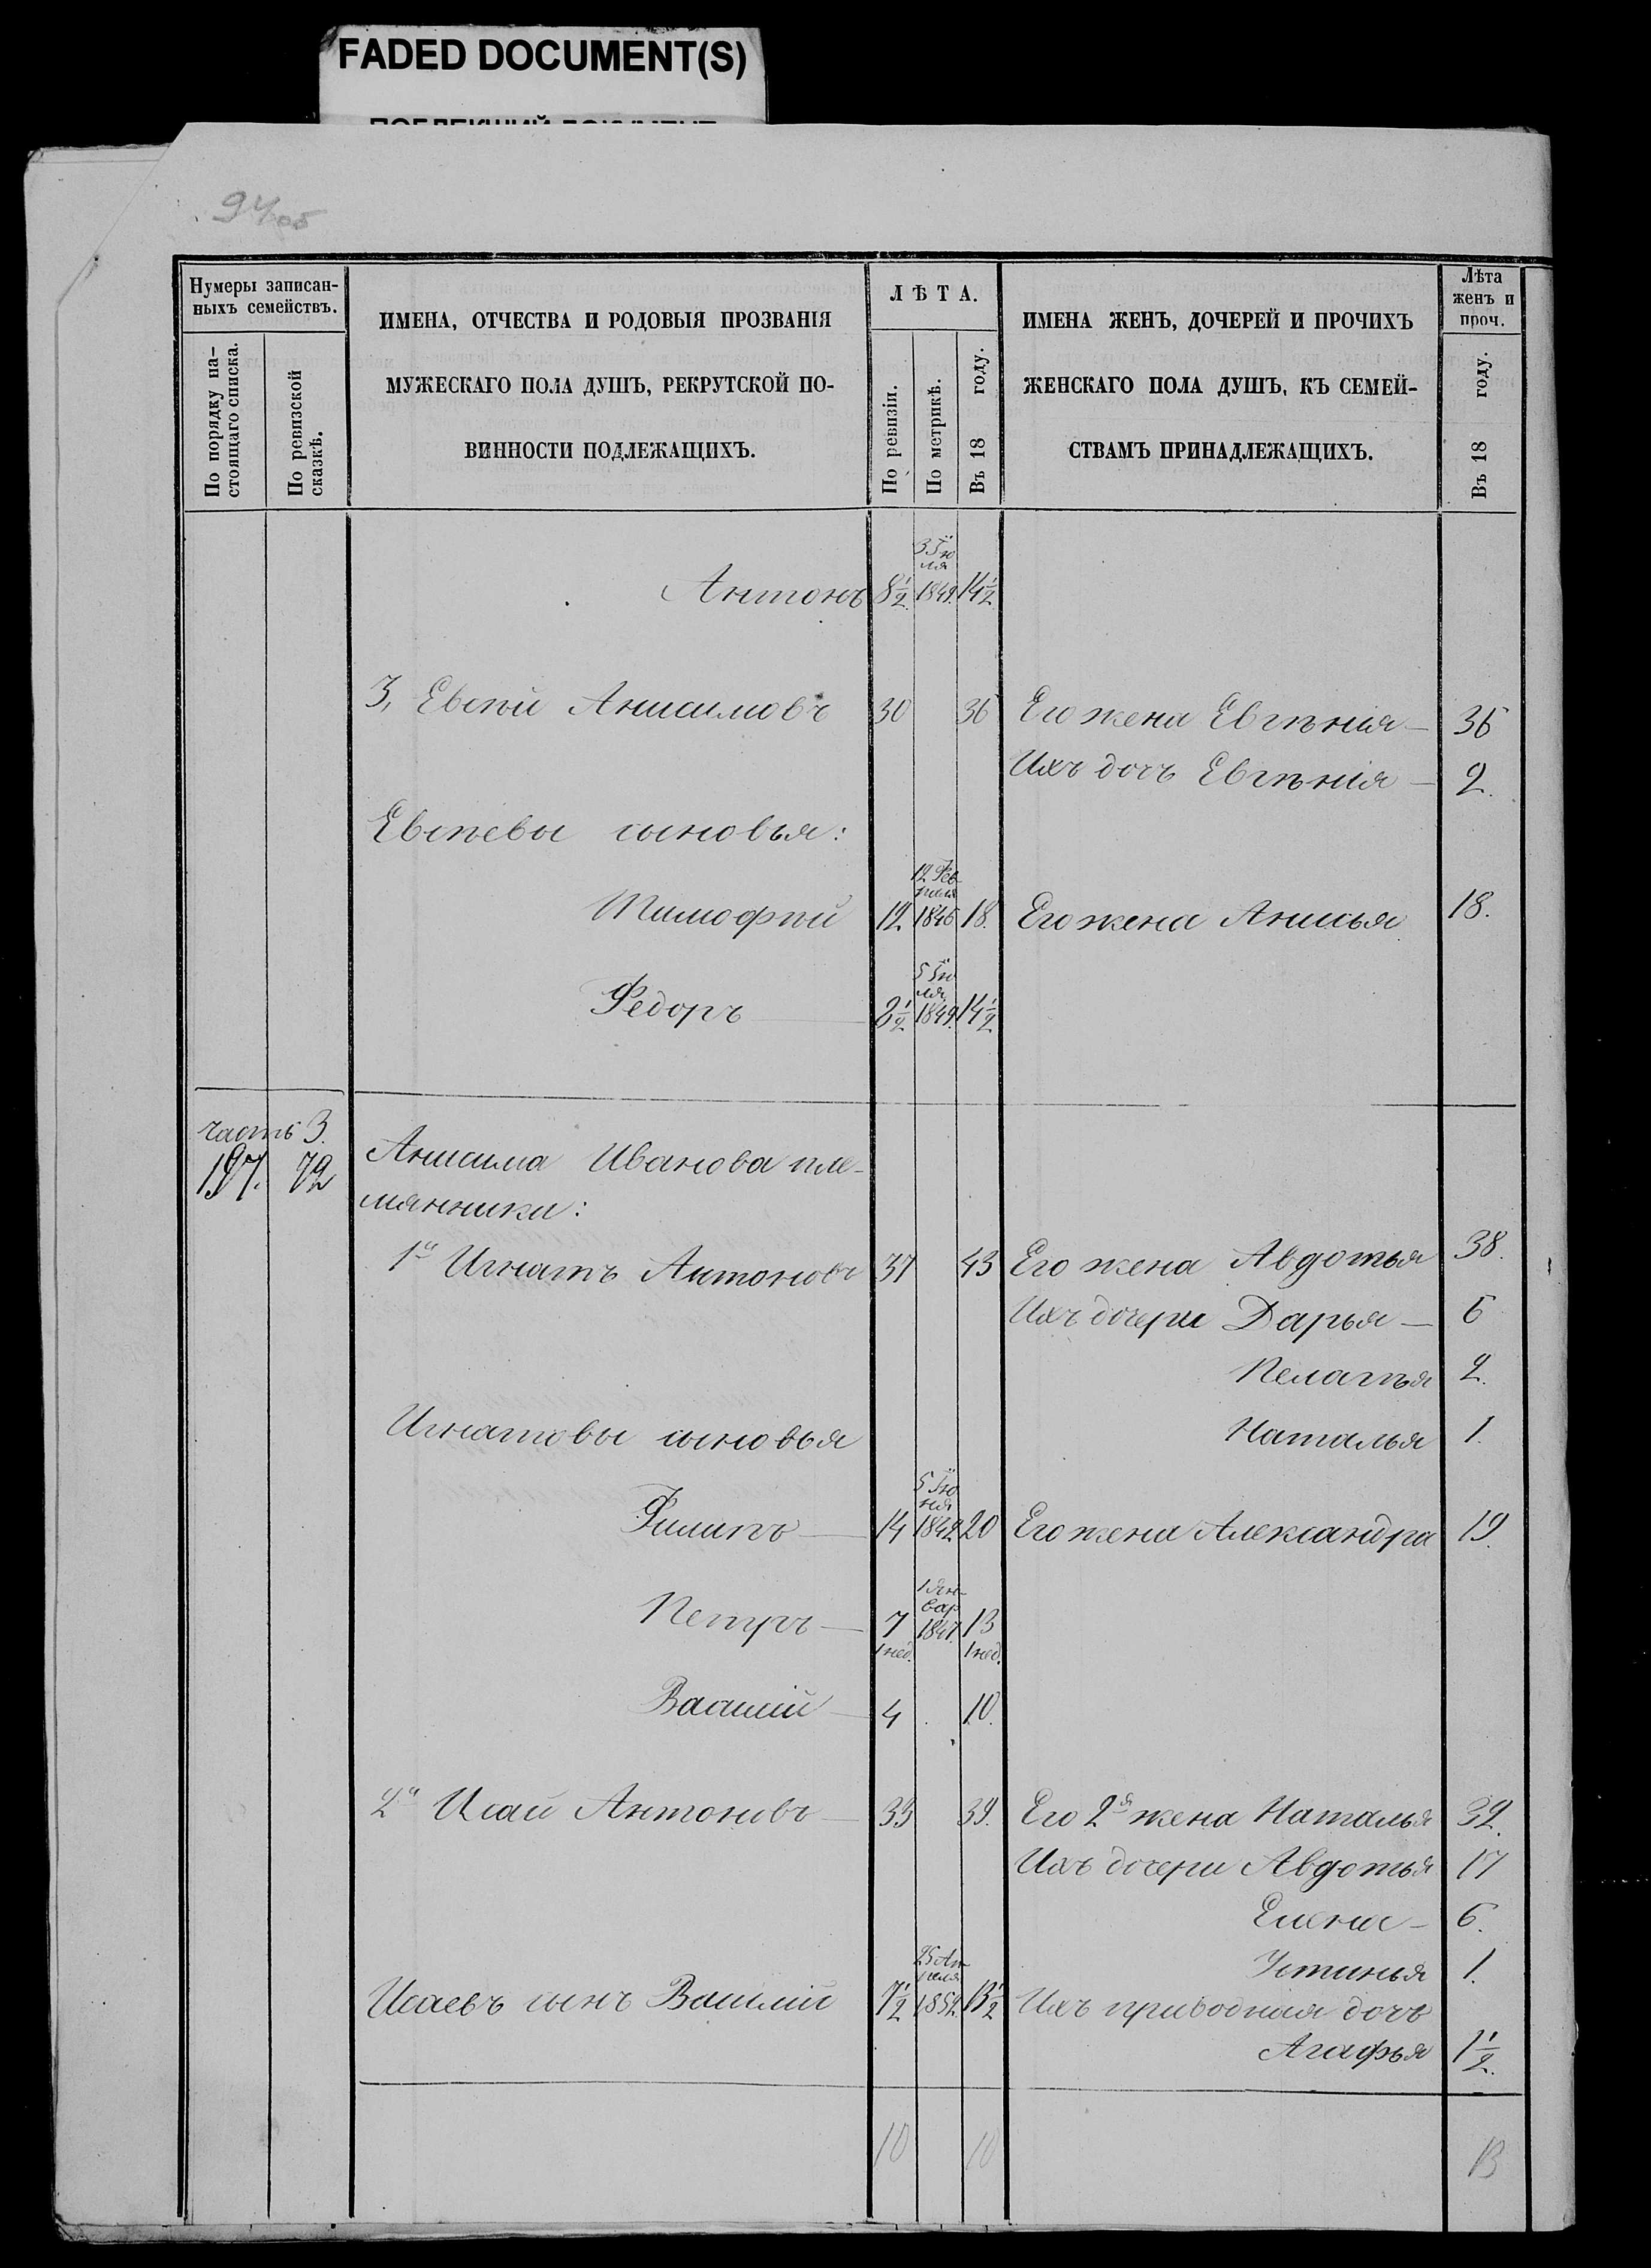 FADED DOCUMENT(S)
94 об
Нумеры записан-
ныхъ семействъ.
По порядку на-
стоящаго списка.
По ревизской
сказкѣ.
ИМЕНА, ОТЧЕСТВА И РОДОВЫЯ ПРОЗВАНІЯ
МУЖЕСКАГО ПОЛА ДУШЪ, РЕКРУТСКОЙ ПО-
ВИННОСТИ ПОДЛЕЖАЩИХЪ.
ЛѢТА.
По ревизіи.
По метрикѣ.
Въ 18 году.
ИМЕНА ЖЕНЪ, ДОЧЕРЕЙ И ПРОЧИХЪ
ЖЕНСКАГО ПОЛА ДУШЪ, КЪ СЕМЕЙ-
СТВАМЪ ПРИНАДЛЕЖАЩИХЪ.
Лѣта
женъ и
проч.
Въ 18 году.
3 Ію
ля
Антонъ 8½ 1849. 14½
3, Евсѣй Анисимовъ 30 36 Его жена Евгѣнія 36
Ихъ дочь Евгѣнія 2.
Евсѣевы сыновья:
12 Фев
раля
Тимофѣй 12 1846 18. Его жена Анисья 18.
5 Ію
ля
Федоръ 8½ 1849. 14½
часть 3.
197. 72 Анисима Иванова пле-
мянники:
1й Игнатъ Антоновъ 37 43 Его жена Авдотья 38.
Ихъ дочери Дарья 6
Пелагѣя 2.
Игнатовы сыновья Наталья 1.
5 Ію
ня
Филипъ 14 1842 20 Его жена Александра 19.
1 Ян-
вар
Петръ 7 1847. 13
1 нед. 1 нед.
Василій 4 10.
2й Исай Антоновъ 33 39. Его 2я жена Наталья 32.
Ихъ дочери Авдотья 17
Елена 6.
25 Ап
реля
Устинья 1.
Исаевъ сынъ Василій 7½ 1851. 13½ Ихъ приводная дочь
Агафья 1½.
10 10 13